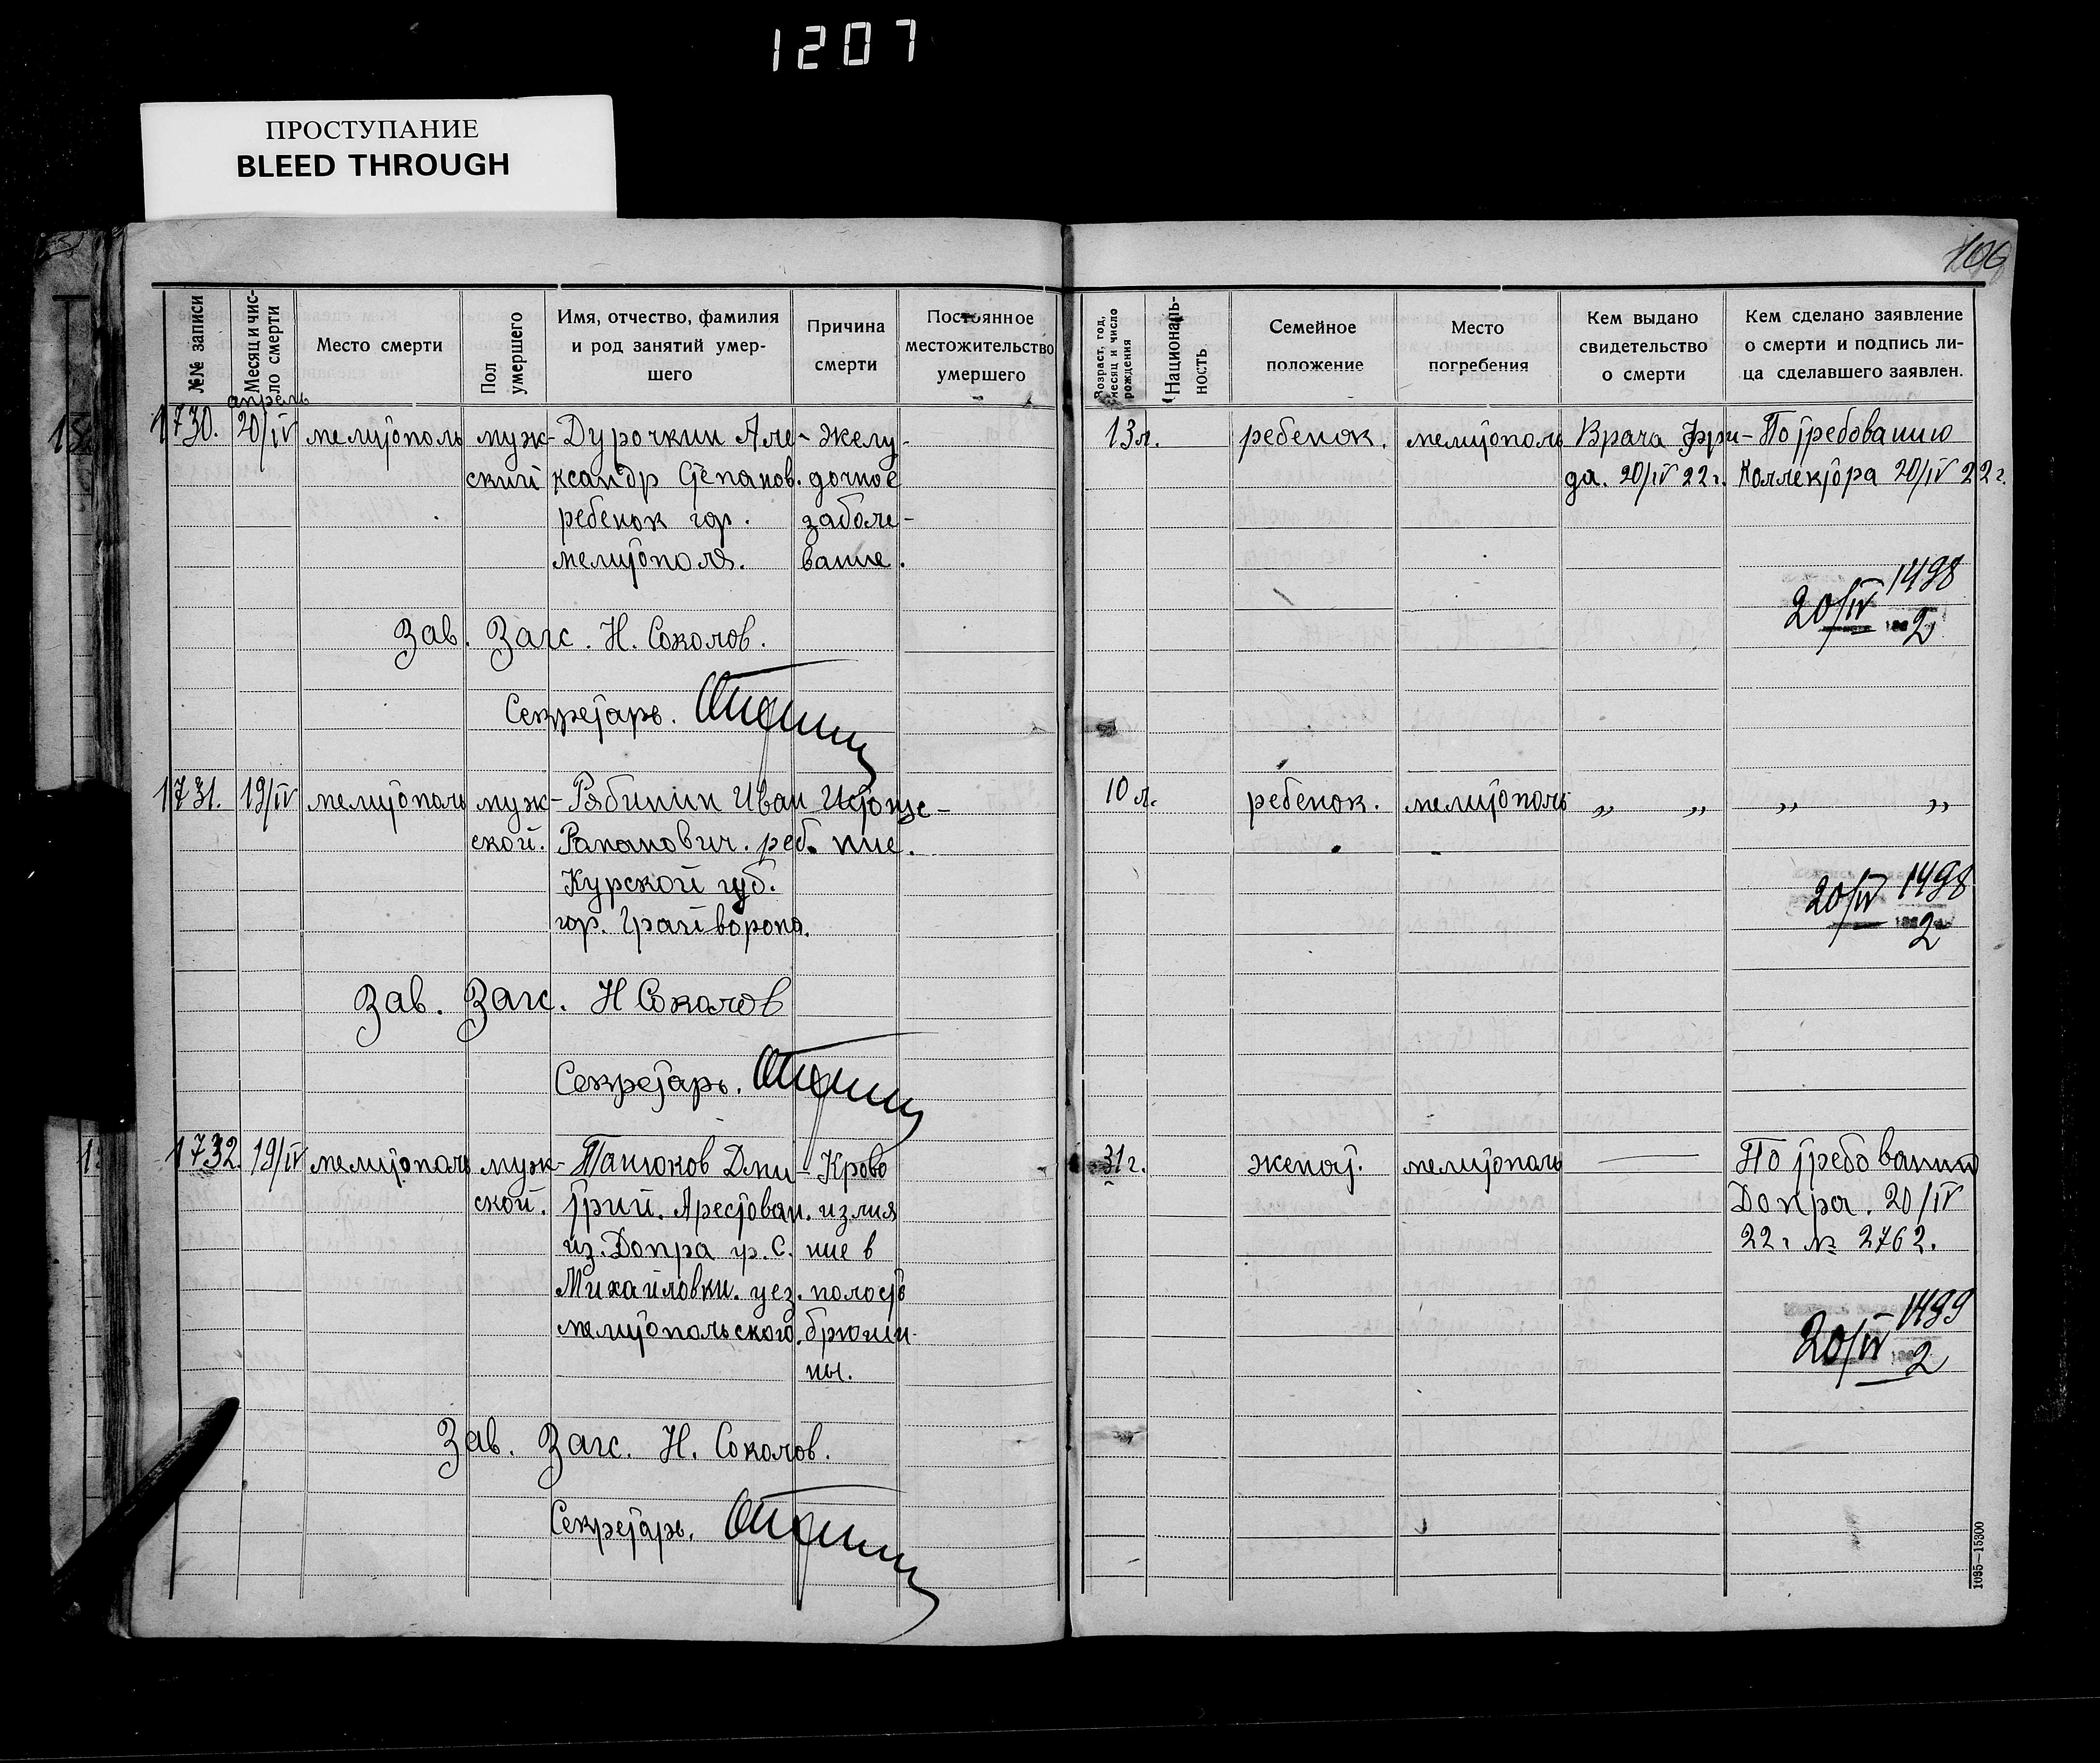 1207
ПРОСТУПАНИЕ
BLEED THROUGH
106
№№ записи
Месяц и чис-
ло смерти
Место смерти
Пол
умершего
Имя, отчество, фамилия
и род занятий умер-
шего
Причина
смерти
Постоянное
местожительство
умершего
Возраст, год,
месяц и число
рождения
Националь-
ность
Семейное
положение
Место
погребения
Кем выдано
свидетельство
о смерти
Кем сделано заявление
о смерти и подпись ли-
ца сделавшего заявлен.
апрель
1730. 20/IV мелитополь муж- Дурочкин Але- желу- 13 л. ребенок. мелитополь Врача Фри- По требованию
ский ксандр Степанов. дочное да. 20/IV 22 г. Коллектора 20/IV 22 г.
ребенок гор. заболе-
мелитополя. вание.
20/IV 1498
2
Зав. Загс. Н. Соколов.
Секретарь.
1731. 19/IV мелитополь муж- Рябинин Иван Истоще- 10 л. ребенок. мелитополь „ „ „ „
ской. Романович. реб. ние.
Курской губ.
гор. Грайворона.
20/IV 1498
2
Зав. Загс. Н Соколов
Секретарь.
1732. 19/IV мелитополь муж- Панюков Дми- Крово 31 г. женат. мелитополь — По требованию
ской. трий. Арестован. излия Допра. 20/IV
из. Допра гр. С. ние в 22 г № 2762.
Михайловки. уез. полость
мелитопольского. брюши-
ны.
20/IV 1499
2
Зав. Загс. Н. Соколов.
Секретарь.
1095—15300